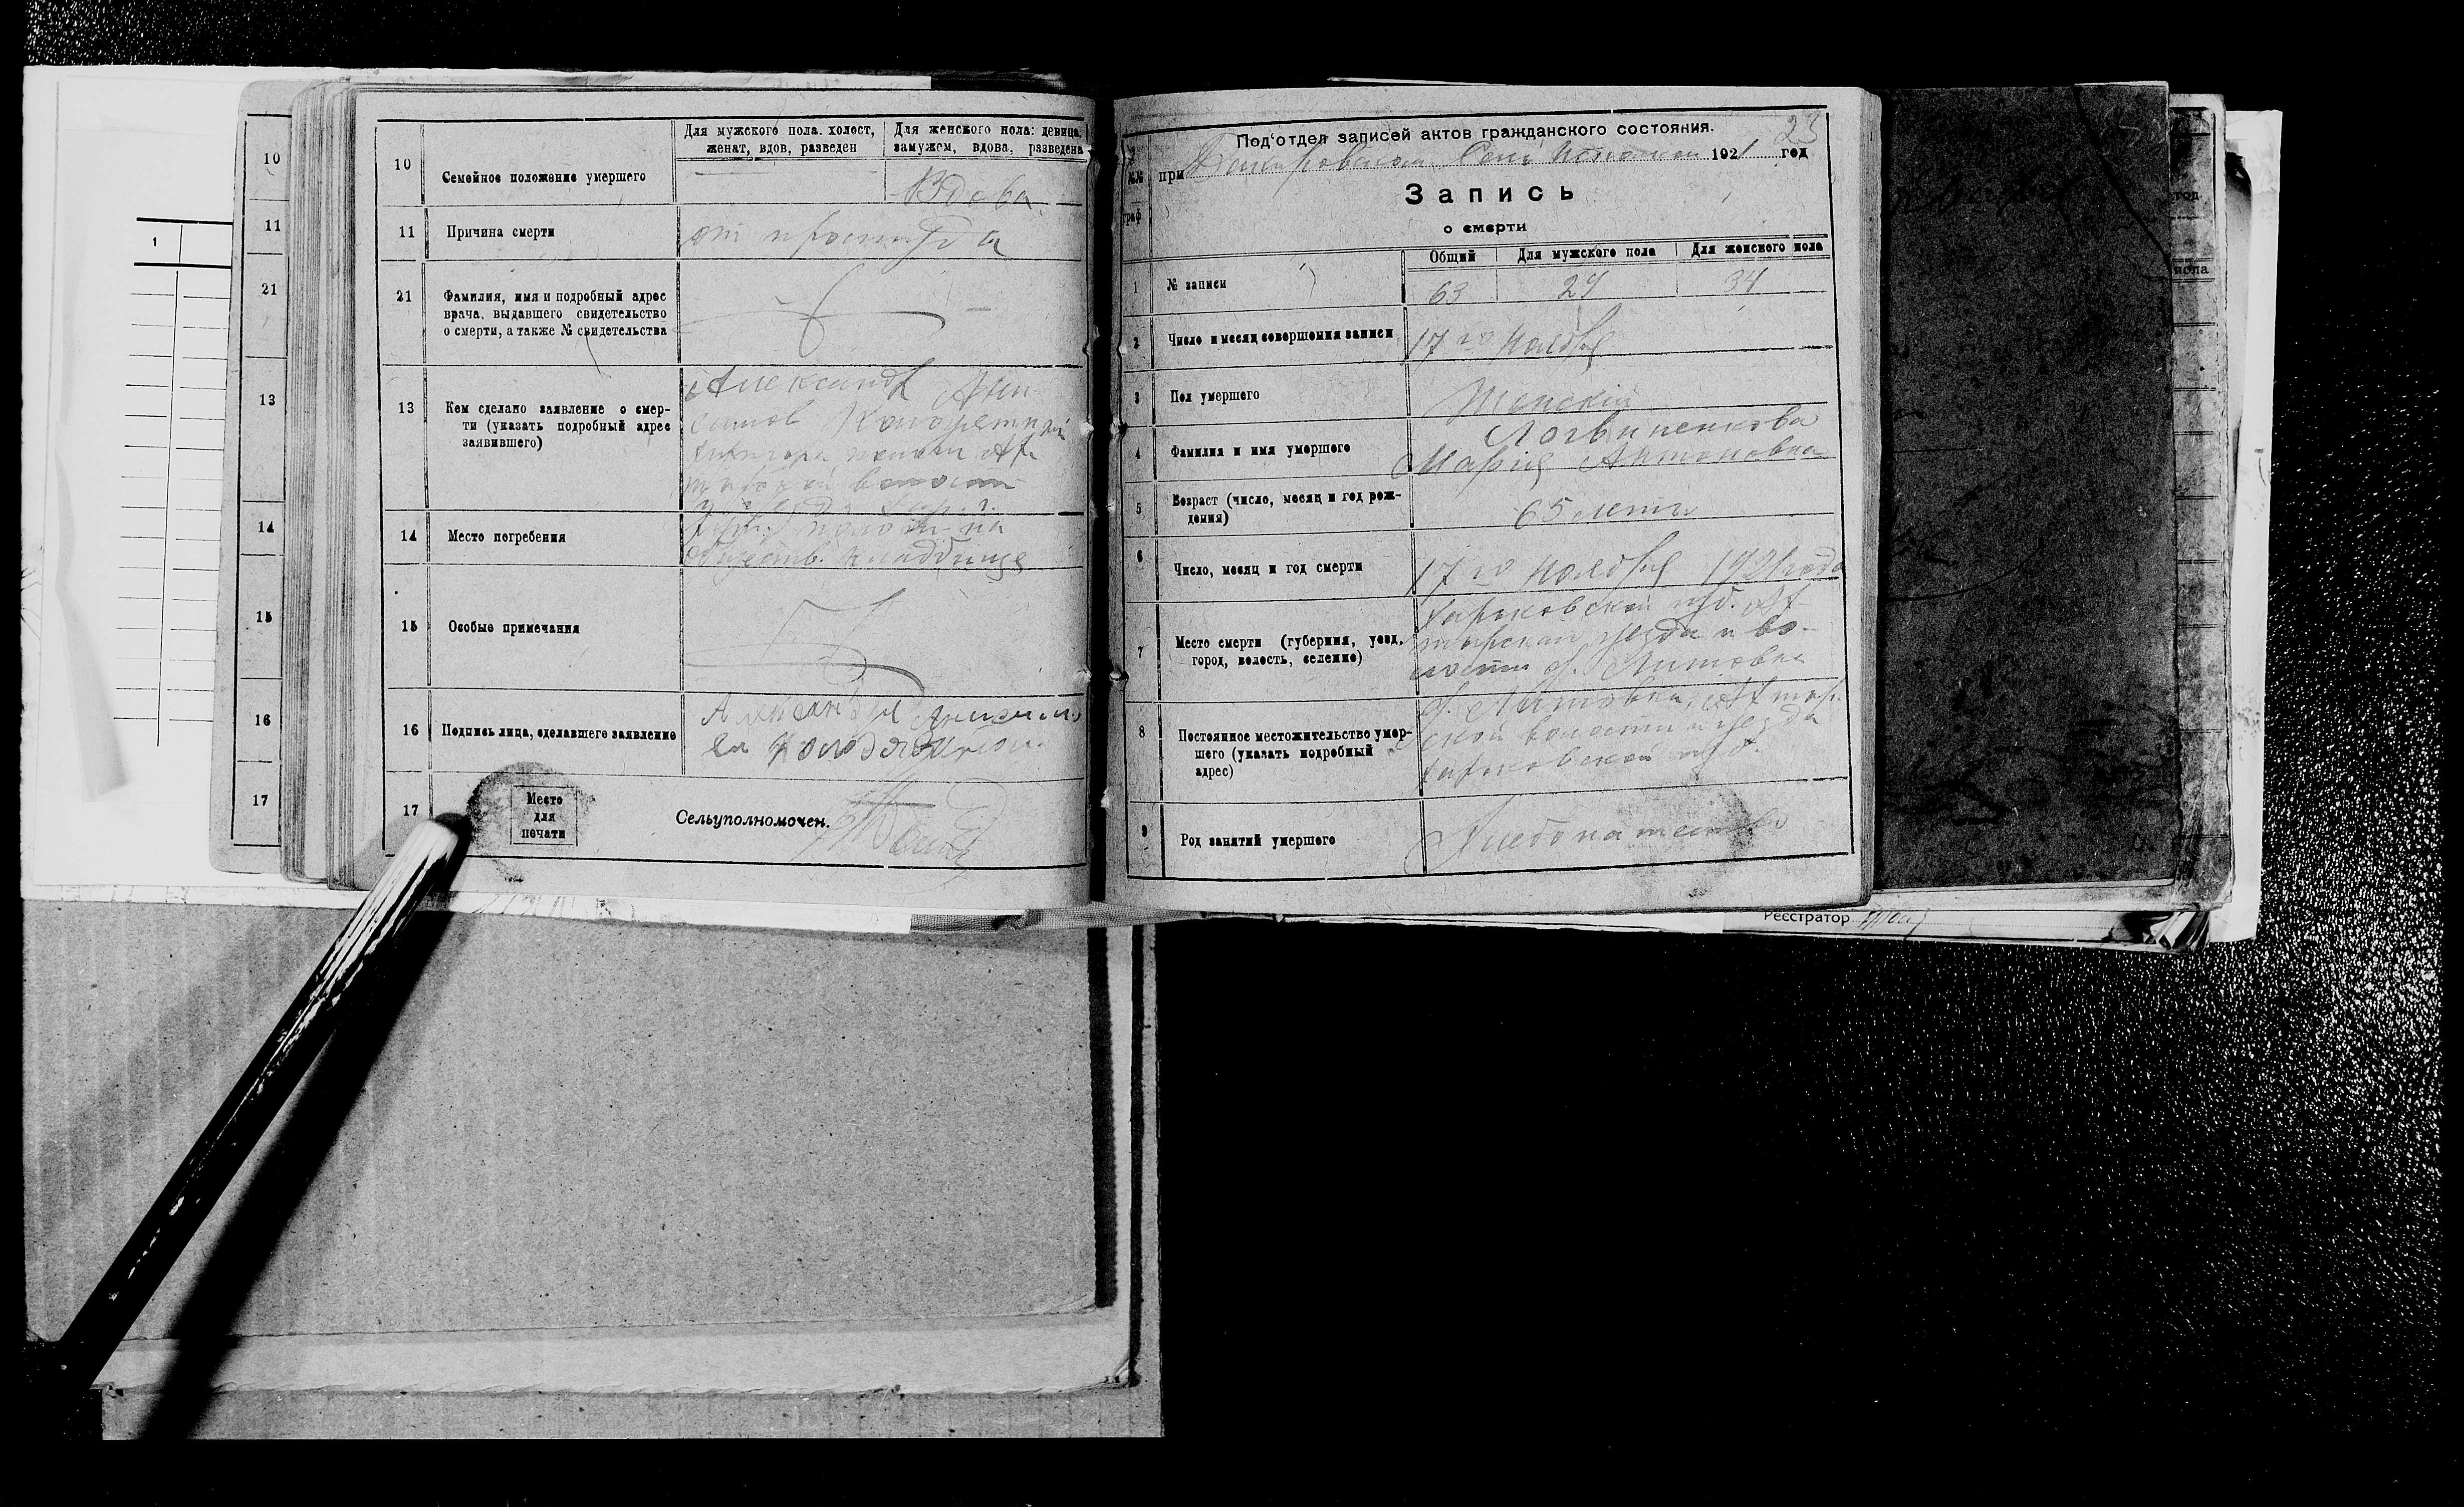 10
11
21
13
14
15
16
17
1
10
Семейное положение умершего
Для мужского пола. холост,
женат, вдов, разведен
Для женского пола: девица,
замужем, вдова, разведена
Вдова
11
Причина смерти
от простуды
21
Фамилия, имя и подробный адрес
врача, выдавшего свидетельство
о смерти, а также № свидетельства
13
Кем сделано заявление о смер-
ти (указать подробный адрес
заявившего)
Александр
14
Место погребения
на
кладбище
15
Особые примечания
16
Подпись лица, сделавшего заявление
17
Место
для
печати
Сельуполномочен.
23
Под'отдел записей актов гражданского состояния.
№№
граф
при 1921 год
Запись
о смерти
Общий
Для мужского пола
Для женского пола
1
№ записи
63
29
34
2
Число и месяц совершения записи
17 го Ноября
3
Пол умершего
Женский
4
Фамилия и имя умершего
Логвиненкова
Мария Антоновна
5
Возраст (число, месяц и год рож-
дения)
65 летъ
6
Число, месяц и год смерти
17 го Ноября 1921 года
7
Место смерти (губерния, уезд,
город, волость, селение)
Харьковской губ. Ах-
тырской уезда и во-
лости с. Литовка
8
Постоянное местожительство умер-
шего (указать подробный
адрес)
с. Литовка, Ахтыр.
ской волости и уезда
Харьковской губ.
9
Род занятий умершего
Хлебопашество
год
пола
Реєстратор